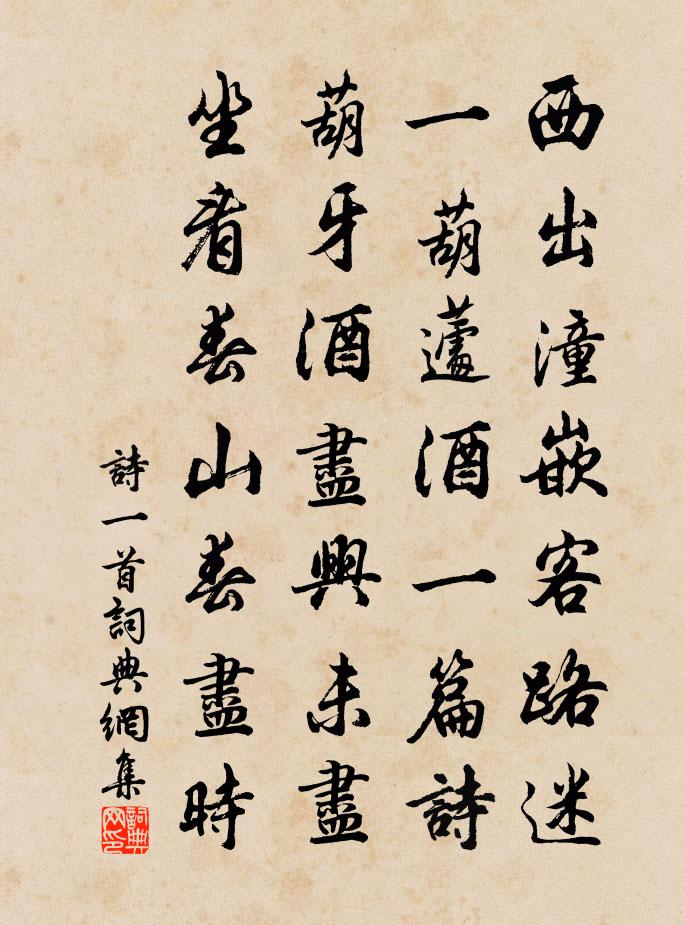 西出潼嵌客路迷
一葫蘆酒一篇詩
葫牙酒盡興未盡
坐看春山春盡時
詩一首詞典網集
詞典
网印